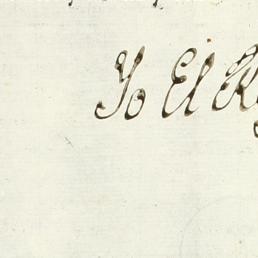 Yo El R